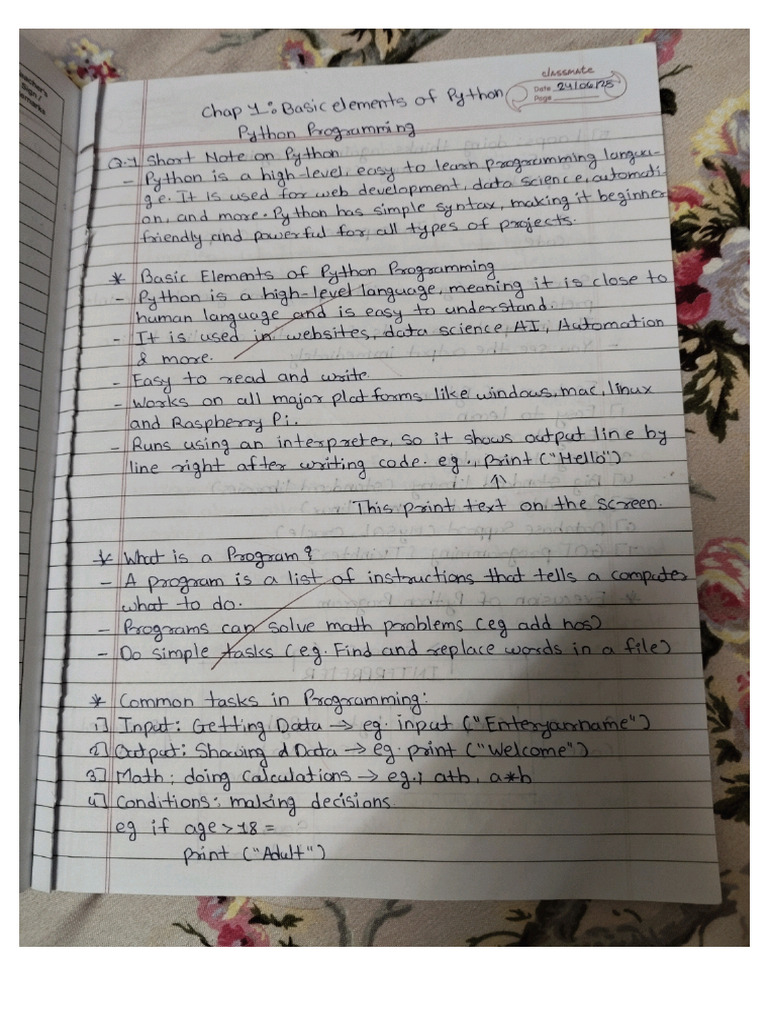 Teacher's
Sign /
Remarks
classmate
Date 24/06/25
Page
Chap 1: Basic elements of Python
Python Programming
Q.1 Short Note on Python
- Python is a high-level, easy to learn programming langua-
ge. It is used for web development, data science, automati-
on, and more. Python has simple syntax, making it beginner
friendly and powerful for all types of projects.
* Basic Elements of Python Programming
- Python is a high-level language, meaning it is close to
human language and is easy to understand.
- It is used in websites, data science, AI, Automation
& more.
- Easy to read and write.
- Works on all major platforms like windows, mac, linux
and Raspberry Pi.
- Runs using an interpreter, so it shows output line by
line right after writing code. eg., print ("Hello")
This print text on the screen.
* What is a Program?
- A program is a list of instructions that tells a computer
what to do.
- Programs can solve math problems (eg add nos)
- Do simple tasks (eg. Find and replace words in a file)
* Common tasks in Programming:
1] Input: Getting Data → eg. input ("Enteryourname")
2] Output: Showing d Data → eg. print ("Welcome")
3] Math: doing Calculations → eg., a+b, a*b
4] Conditions: making decisions.
eg if age > 18 =
print ("Adult")